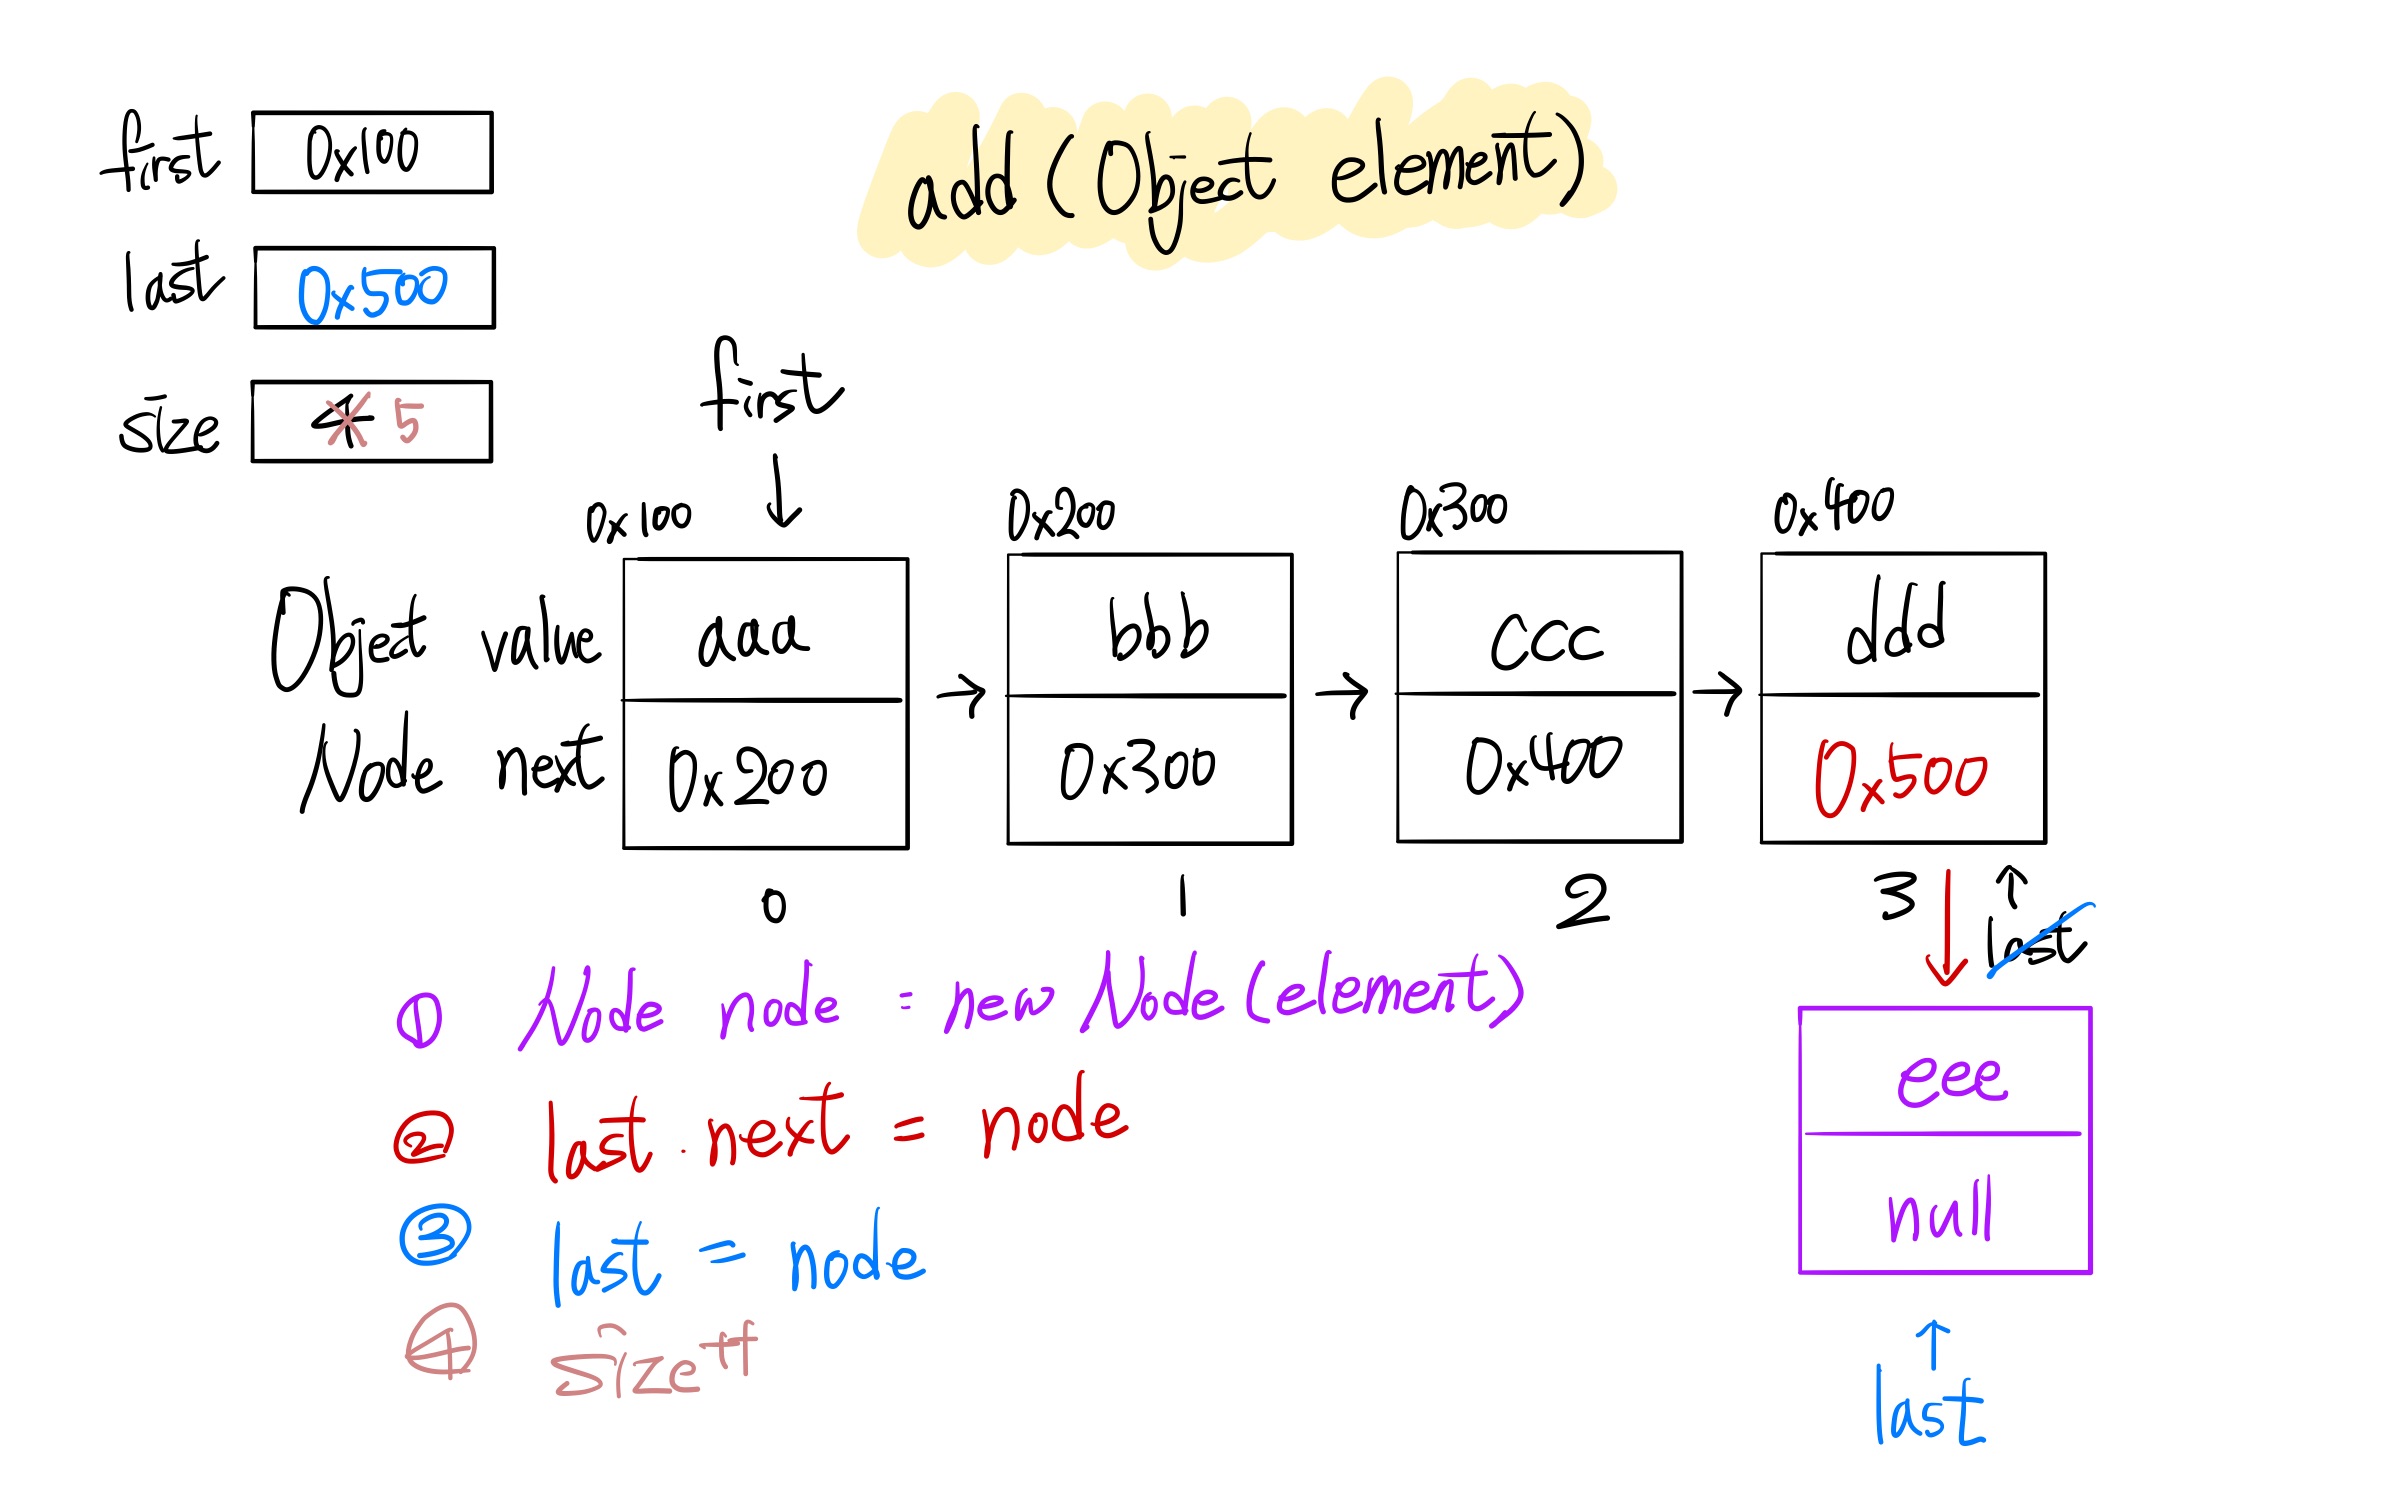 add(Object element)
first 0x100
last 0x500
size 4 5
first
0x100 0x200 0x300 0x400
Object value aaa bbb ccc ddd
Node next 0x200 0x300 0x400 0x500
0 1 2 3
last
① Node node = new Node(element)
② last.next = node
③ last = node
④ size++
eee
null
last